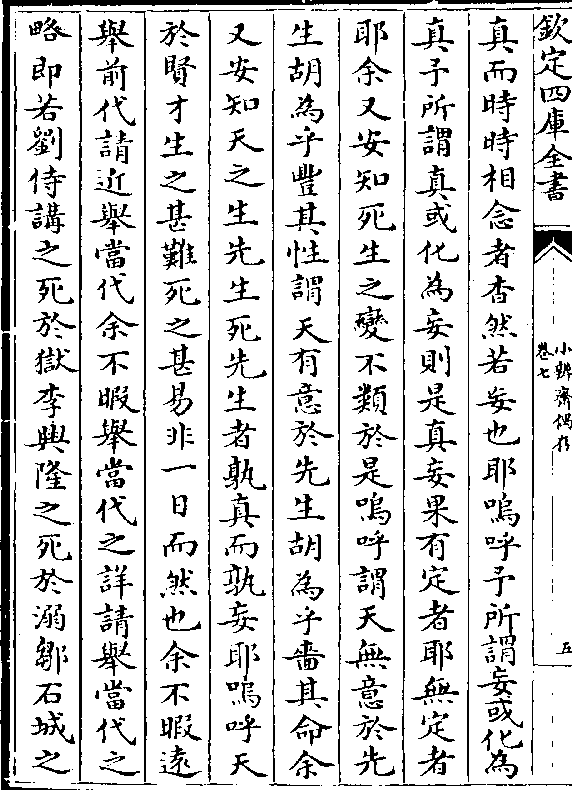 欽定四庫全書
小辨齋偶存
卷七
五
真而時時相念者杳然若妄也耶嗚呼予所謂妄或化為
真予所謂真或化為妄則是真妄果有定者耶無定者
耶余又安知死生之變不類於是嗚呼謂天無意於先
生胡為乎豐其性謂天有意於先生胡為乎嗇其命余
又安知天之生先生死先生者孰真而孰妄耶嗚呼天
於賢才生之甚難死之甚易非一日而然也余不暇遠
舉前代請近舉當代余不暇舉當代之詳請舉當代之
略即若劉侍講之死於獄李興隆之死於溺鄒石城之